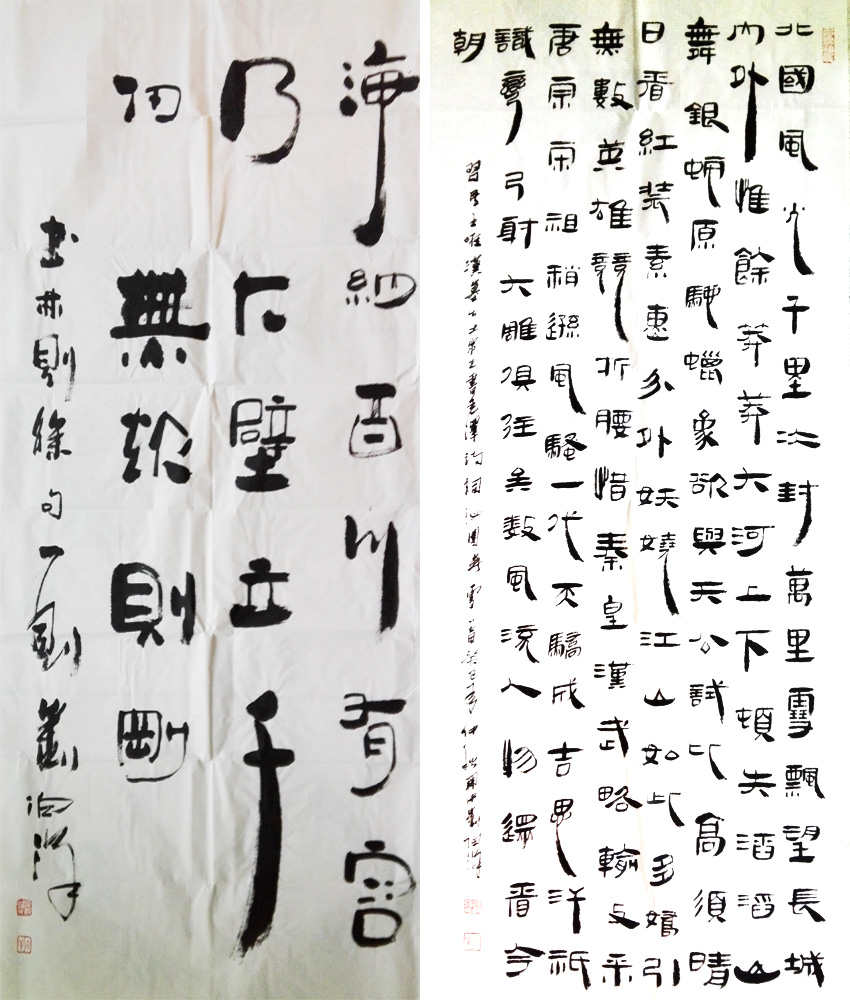 海納百川有容
乃大壁立千
仞無欲則剛
書林則徐句一則劉
北國風光千里冰封萬里雪飄望長城
內外惟餘莽莽大河上下頓失滔滔山
舞銀蛇原馳蠟象欲與天公試比高須晴
日看紅装素裹分外妖嬈江山如此多嬌引
無數英雄競折腰惜秦皇漢武略輸文采
唐宗宋祖稍遜風騷一代天驕成吉思汗祇
識彎弓射大雕俱往矣數風流人物還看今
朝
書毛澤沁園春雪一首癸巳年仲秋